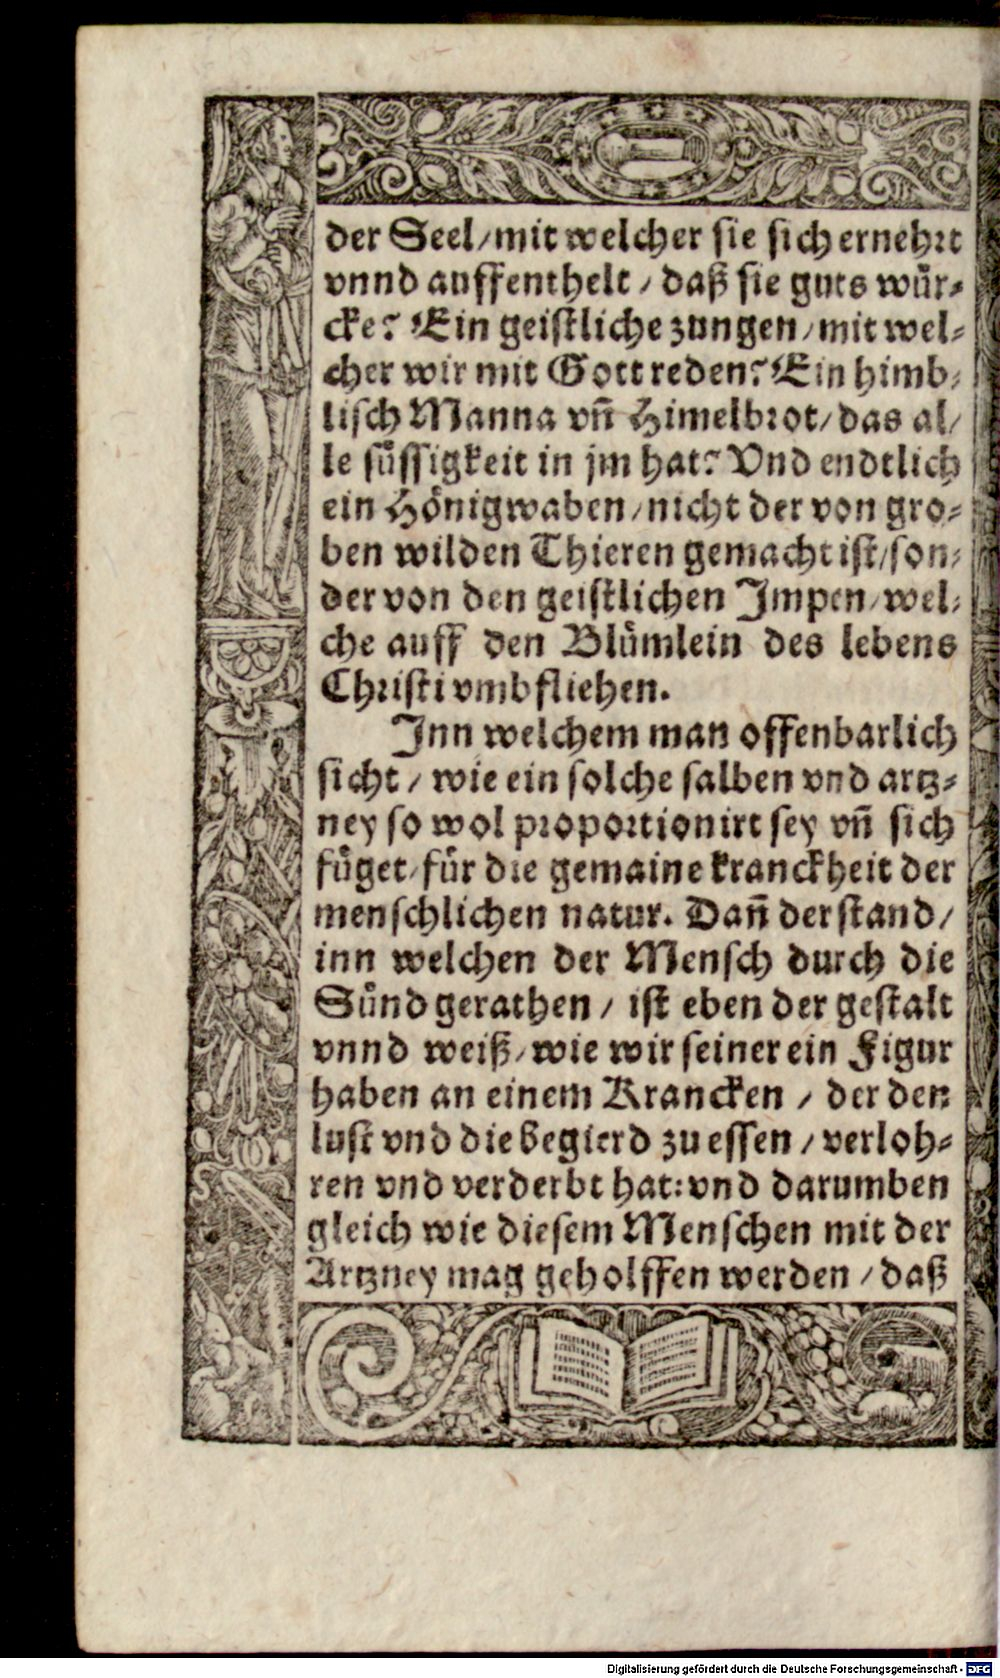 der Seel/ mit welcher sie sich ernehrt
vnnd auffenthelt / daß sie guts wür-
cke? Ein geistliche zungen/ mit wel-
cher wir mit Gott reden? Ein himb-
lisch Manna vñ Himelbrot/ das al-
le süssigkeit in jm hat? Vnd endtlich
ein Hönigwaben/ nicht der von gro-
ben wilden Thieren gemacht ist/ son-
der von den geistlichen Impen/ wel-
che auff den Blümlein des lebens
Christi vmbfliehen.
Inn welchem man offenbarlich
sicht / wie ein solche salben vnd artz-
ney so wol proportionirt sey vñ sich
füget/ für die gemaine kranckheit der
menschlichen natur. Dañ der stand/
inn welchen der Mensch durch die
Sünd gerathen / ist eben der gestalt
vnnd weiß/ wie wir seiner ein Figur
haben an einem Krancken / der den
lust vnd die begierd zu essen / verloh-
ren vnd verderbt hat: vnd darumben
gleich wie diesem Menschen mit der
Artzney mag geholffen werden / daß
Digitalisierung gefördert durch die Deutsche Forschungsgemeinschaft - DFG